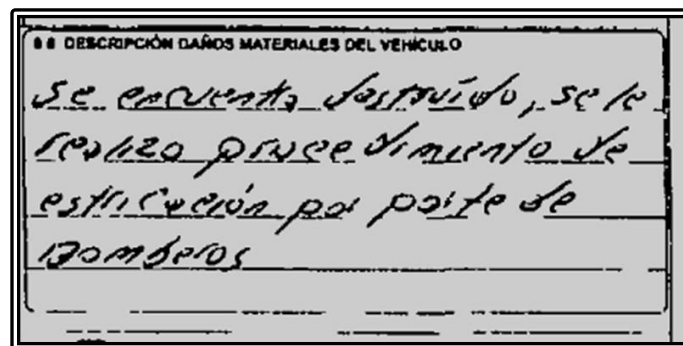 8 8 DESCRIPCIÓN DAÑOS MATERIALES DEL VEHÍCULO
Se encuentra destruído, se le
realizo procedimiento de
estricución por parte de
Bomberos